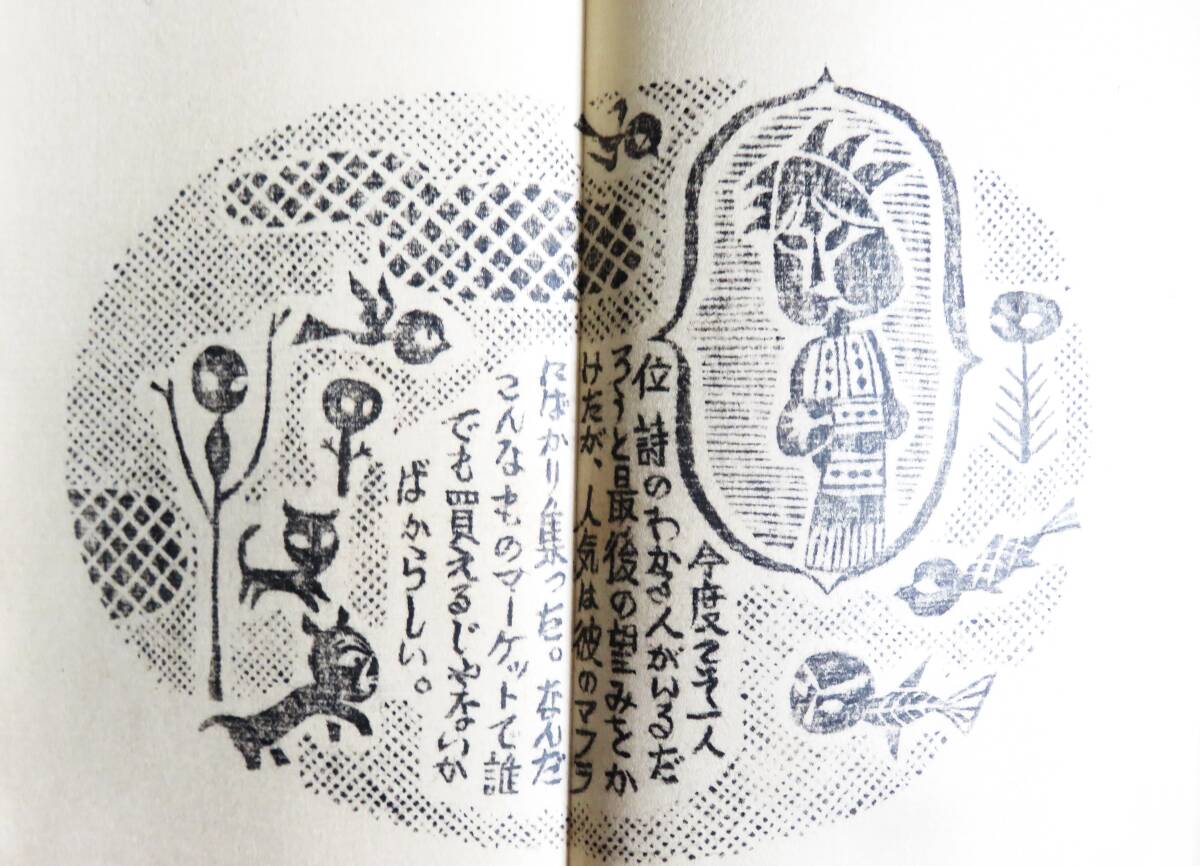 今度こそ一人
位詩のわかる人がいるだ
ろうと最後の望みをか
けたが、人気は彼のマフラ
にばかり集った。なんだ
こんなものマーケットで誰
でも買えるじゃないか
ばからしい。